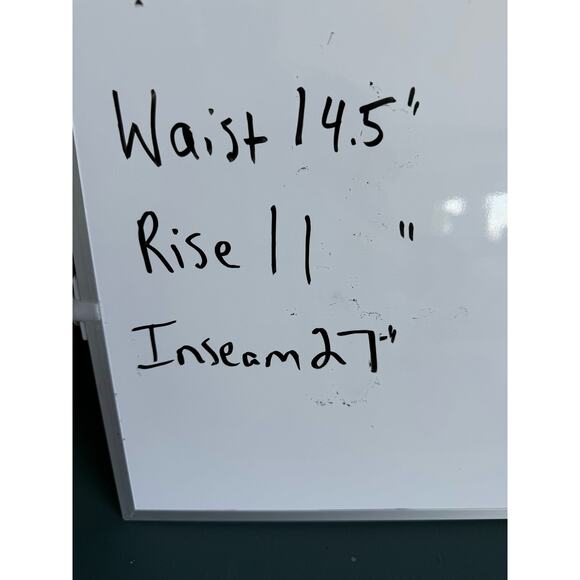 Waist 14.5"
Rise 11 "
Inseam 27"